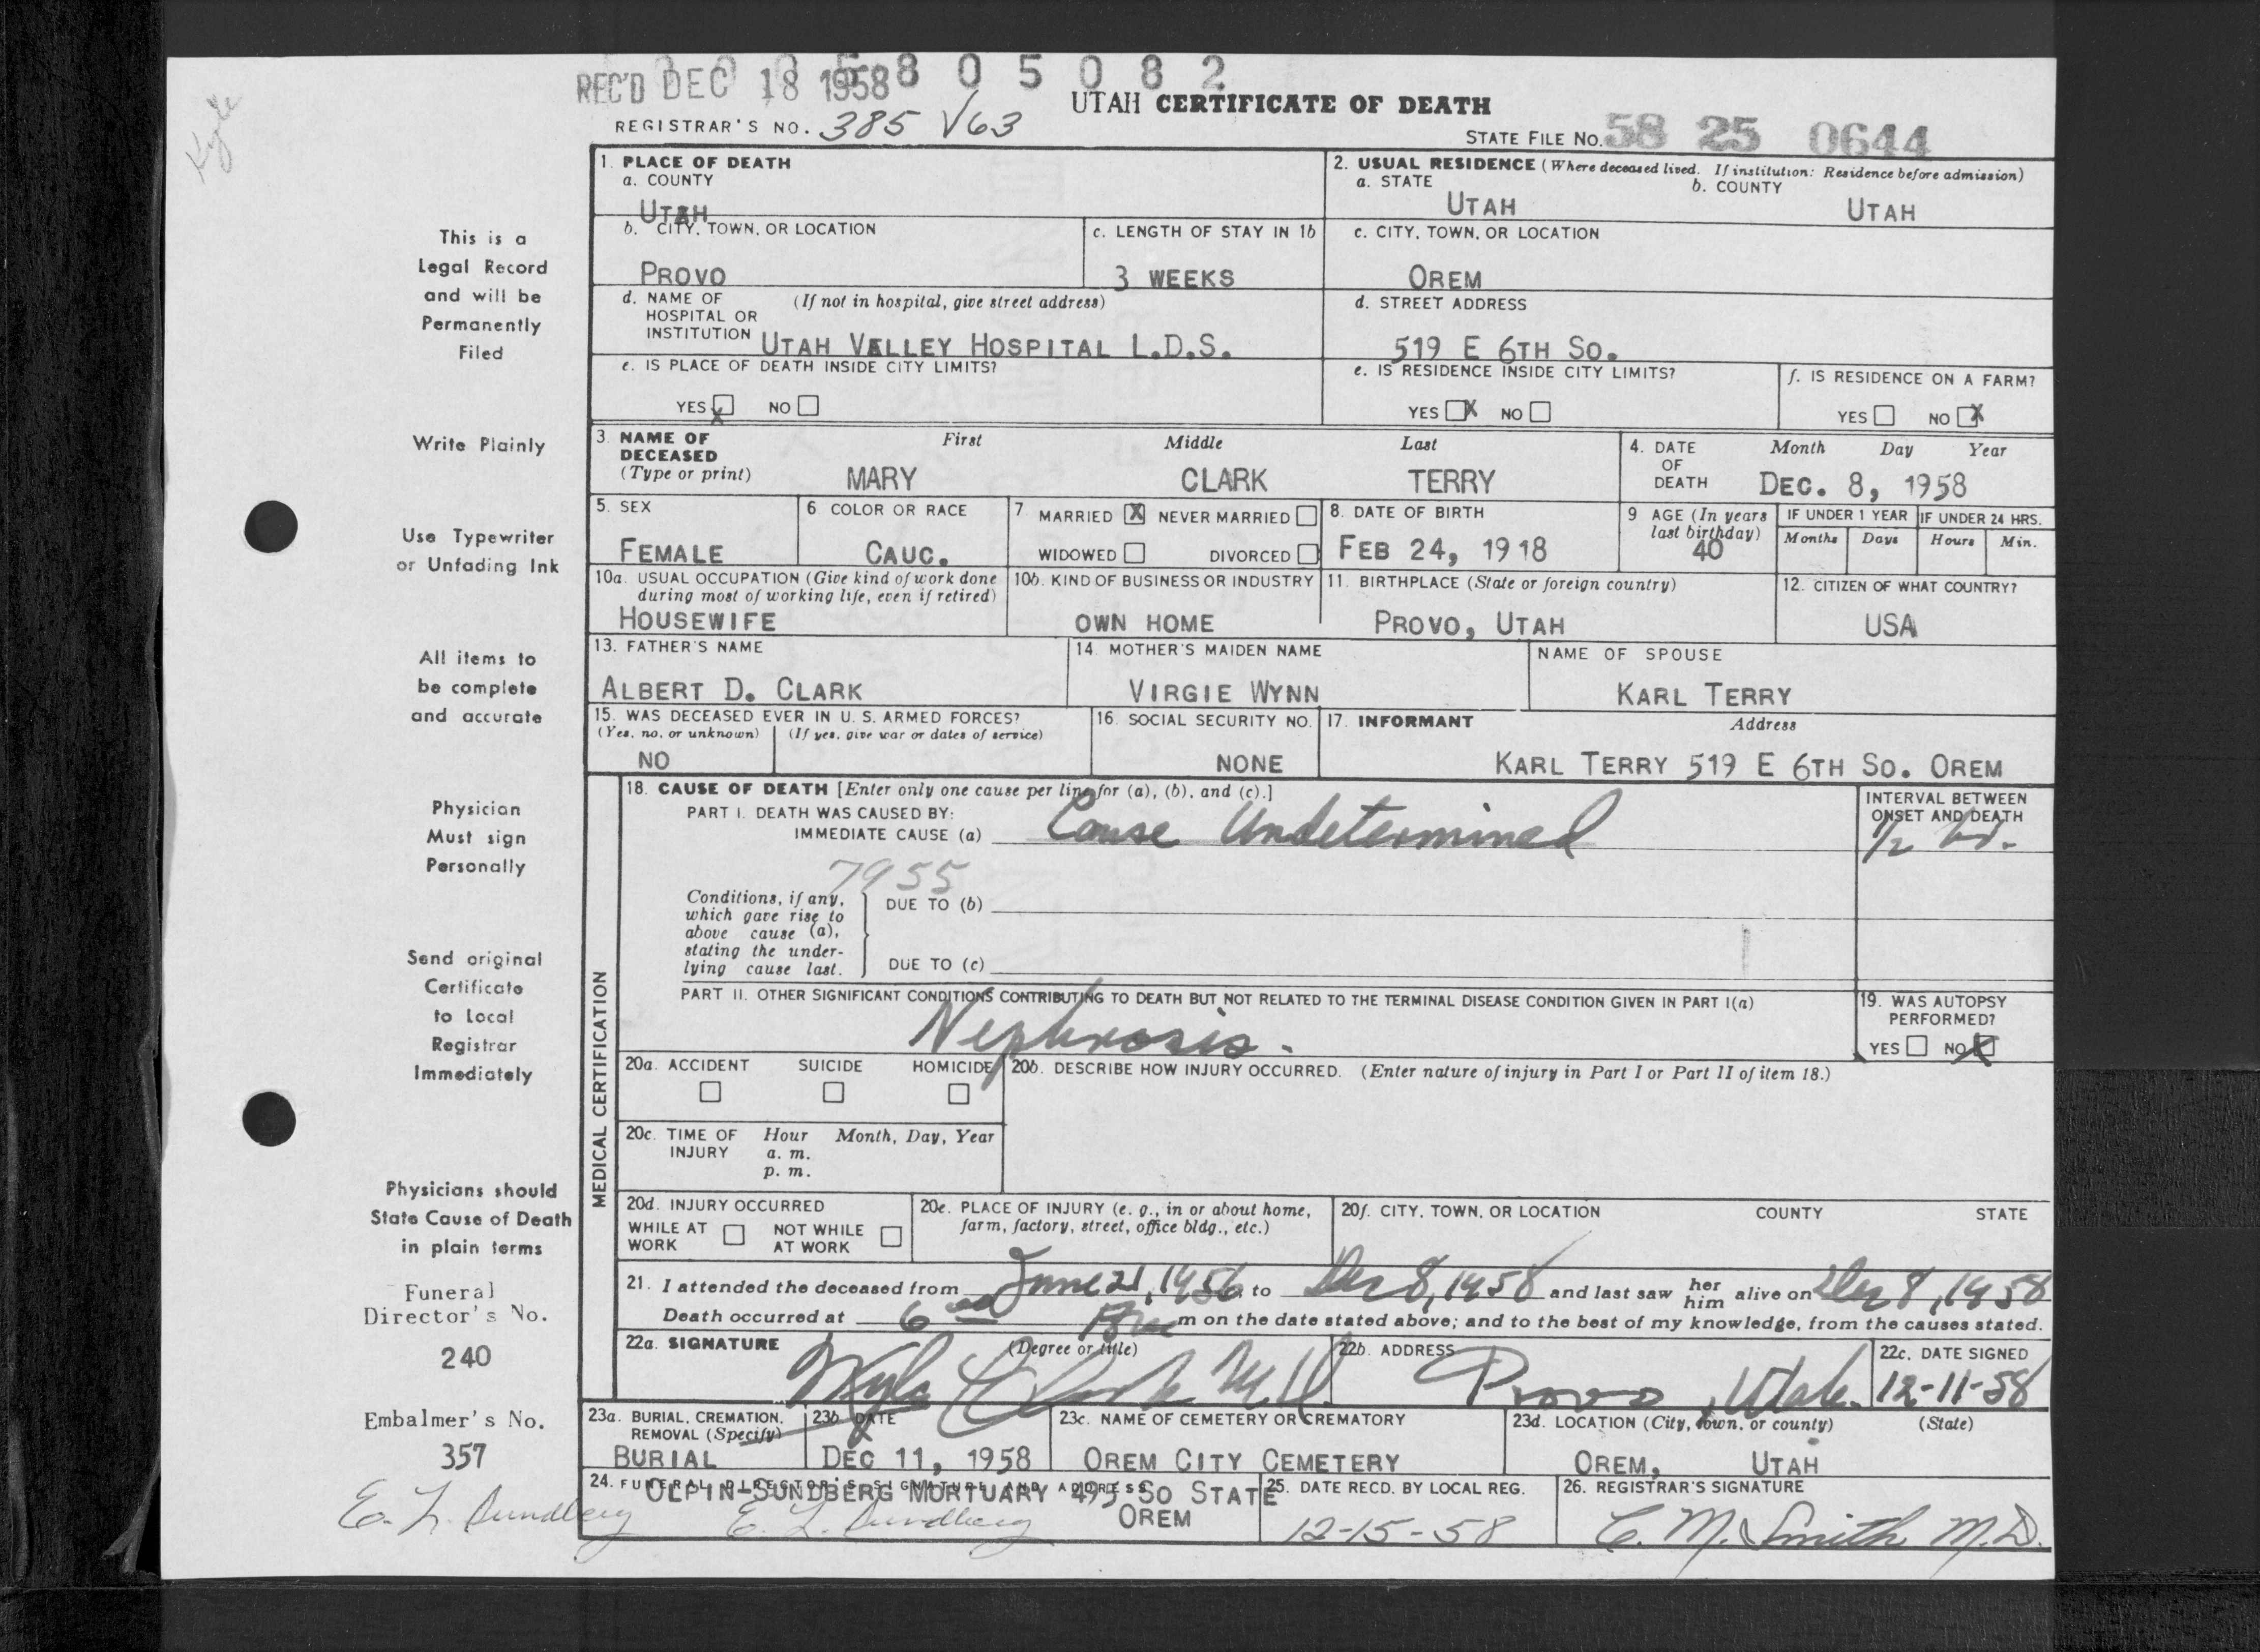 Kyle
REC'D DEC 18 1958 8 0 5 0 8 2
UTAH CERTIFICATE OF DEATH
REGISTRAR'S NO. 385 V63
STATE FILE NO. 58 25 0644
1. PLACE OF DEATH
a. COUNTY
UTAH
2. USUAL RESIDENCE (Where deceased lived. If institution: Residence before admission)
a. STATE b. COUNTY
UTAH UTAH
b. CITY, TOWN, OR LOCATION
PROVO
c. LENGTH OF STAY IN 1b
3 WEEKS
c. CITY, TOWN, OR LOCATION
OREM
d. NAME OF HOSPITAL OR INSTITUTION (If not in hospital, give street address)
UTAH VALLEY HOSPITAL L.D.S.
d. STREET ADDRESS
519 E 6TH SO.
e. IS PLACE OF DEATH INSIDE CITY LIMITS?
YES X NO
e. IS RESIDENCE INSIDE CITY LIMITS?
YES X NO
f. IS RESIDENCE ON A FARM?
YES NO X
3. NAME OF DECEASED (Type or print)
First Middle Last
MARY CLARK TERRY
4. DATE OF DEATH Month Day Year
DEC. 8, 1958
5. SEX
FEMALE
6 COLOR OR RACE
CAUC.
7 MARRIED X NEVER MARRIED
WIDOWED DIVORCED
8. DATE OF BIRTH
FEB 24, 1918
9 AGE (In years last birthday)
40
IF UNDER 1 YEAR
Months Days
IF UNDER 24 HRS.
Hours Min.
10a. USUAL OCCUPATION (Give kind of work done during most of working life, even if retired)
HOUSEWIFE
10b. KIND OF BUSINESS OR INDUSTRY
OWN HOME
11. BIRTHPLACE (State or foreign country)
PROVO, UTAH
12. CITIZEN OF WHAT COUNTRY?
USA
13. FATHER'S NAME
ALBERT D. CLARK
14. MOTHER'S MAIDEN NAME
VIRGIE WYNN
NAME OF SPOUSE
KARL TERRY
15. WAS DECEASED EVER IN U. S. ARMED FORCES?
(Yes, no, or unknown) (If yes, give war or dates of service)
NO
16. SOCIAL SECURITY NO.
NONE
17. INFORMANT Address
KARL TERRY 519 E 6TH SO. OREM
MEDICAL CERTIFICATION
18. CAUSE OF DEATH [Enter only one cause per line for (a), (b), and (c).]
PART I. DEATH WAS CAUSED BY:
IMMEDIATE CAUSE (a) Cause Undetermined
INTERVAL BETWEEN ONSET AND DEATH
1/2 hr.
7955
Conditions, if any, which gave rise to above cause (a), stating the underlying cause last.
DUE TO (b)
DUE TO (c)
PART II. OTHER SIGNIFICANT CONDITIONS CONTRIBUTING TO DEATH BUT NOT RELATED TO THE TERMINAL DISEASE CONDITION GIVEN IN PART I(a)
Nephrosis.
19. WAS AUTOPSY PERFORMED?
YES NO X
20a. ACCIDENT SUICIDE HOMICIDE
20b. DESCRIBE HOW INJURY OCCURRED. (Enter nature of injury in Part I or Part II of item 18.)
20c. TIME OF INJURY Hour Month, Day, Year
a. m.
p. m.
20d. INJURY OCCURRED
WHILE AT WORK NOT WHILE AT WORK
20e. PLACE OF INJURY (e. g., in or about home, farm, factory, street, office bldg., etc.)
20f. CITY, TOWN, OR LOCATION COUNTY STATE
21. I attended the deceased from June 21, 1956 to Dec 8, 1958 and last saw her him alive on Dec 8, 1958
Death occurred at 6 m on the date stated above; and to the best of my knowledge, from the causes stated.
22a. SIGNATURE (Degree or title)
Clark M.D.
22b. ADDRESS
Provo, Utah.
22c. DATE SIGNED
12-11-58
23a. BURIAL, CREMATION, REMOVAL (Specify)
BURIAL
23b. DATE
DEC 11, 1958
23c. NAME OF CEMETERY OR CREMATORY
OREM CITY CEMETERY
23d. LOCATION (City, town, or county) (State)
OREM, UTAH
24. FUNERAL DIRECTOR'S SIGNATURE AND ADDRESS
OLPIN-SUNDBERG MORTUARY SO STATE
OREM
E. L. Sundberg
25. DATE RECD. BY LOCAL REG.
12-15-58
26. REGISTRAR'S SIGNATURE
C. M. Smith M.D.
This is a
Legal Record
and will be
Permanently
Filed
Write Plainly
Use Typewriter
or Unfading Ink
All items to
be complete
and accurate
Physician
Must sign
Personally
Send original
Certificate
to Local
Registrar
Immediately
Physicians should
State Cause of Death
in plain terms
Funeral
Director's No.
240
Embalmer's No.
357
E. L. Sundberg